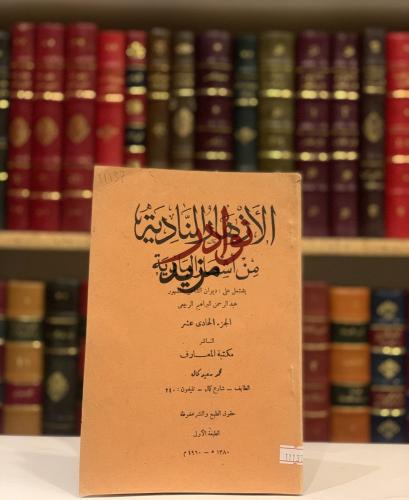 11137
الأزهار النادية
من أشعار البادية
نوادر
مزيد
يشتمل على : ديوان الشاعر المشهور
عبد الرحمن البراهيم الربيعي
الجزء الحادى عشر
الناشر
مكتبة المعارف
محمد سعيد كمال
الطائف - شارع كمال - تليفون : ٢٤٠
حقوق الطبع والنشر محفوظة
الطبعة الأولى
١٣٨٠ ه - ١٩٦٠ م